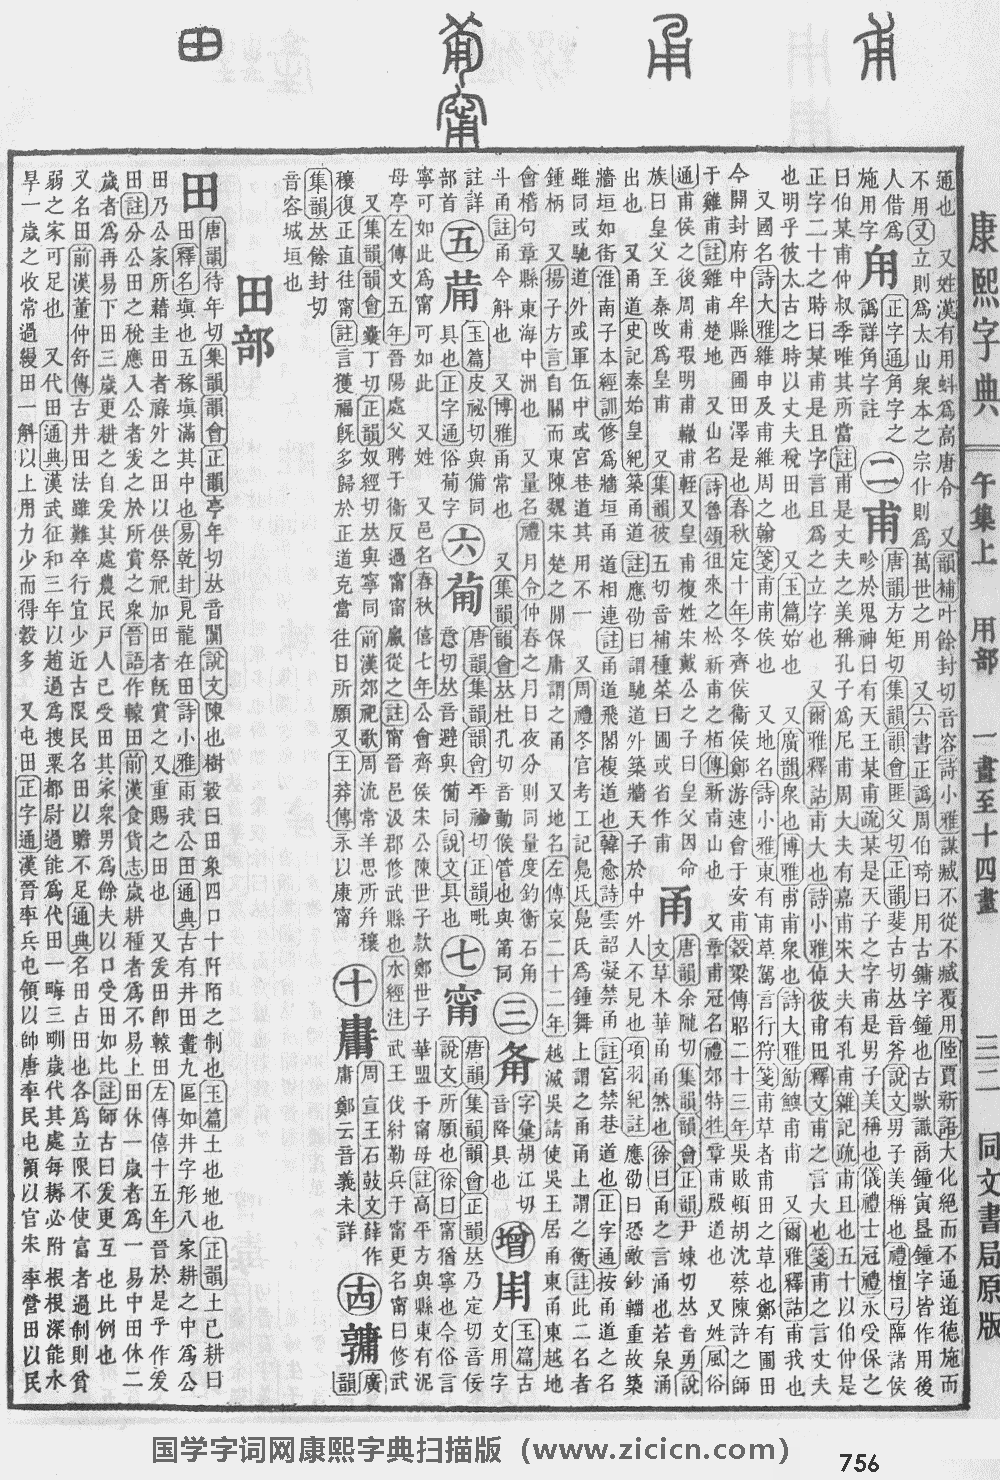 康熙字典 午集上 用部 一畫至十四畫 三二 同文書局原版
通也 又姓漢有用蚪爲高唐令 又韻補叶餘封切音容詩小雅謀臧不從不臧覆用陸賈新語大化絕而不通道德施而
不用又立則爲太山衆本之宗仆則爲萬世之用 又六書正譌周伯琦曰用古鏞字鐘也古款識商鐘寅簋鐘字皆作用後
人借爲施用 甪 正字通角字之譌詳角字註 二 甫 唐韻方矩切集韻韻會匪父切正韻斐古切𠀤音斧說文男子美稱也禮檀弓臨諸侯
畛於鬼神曰有天王某甫疏某是天子之字甫是男子美稱也儀禮士冠禮永受保之
曰伯某甫仲叔季唯其所當註甫是丈夫之美稱孔子爲尼甫周大夫有嘉甫宋大夫有孔甫雜記疏甫且也五十以伯仲是
正字二十之時曰某甫是且字言且爲之立字也 又爾雅釋詁甫大也詩小雅倬彼甫田釋文甫之言大也箋甫之言丈夫
也明乎彼太古之時以丈夫稅田也 又玉篇始也 又廣韻衆也博雅甫甫衆也詩大雅魴鱮甫甫 又爾雅釋詁甫我也
又國名詩大雅維申及甫維周之翰箋甫甫侯也 又地名詩小雅東有甫草駕言行狩箋甫草者甫田之草也鄭有圃田
今開封府中牟縣西圃田澤是也春秋定十年冬齊侯衞侯鄭游速會于安甫穀梁傳昭二十三年吳敗頓胡沈蔡陳許之師
于雞甫註雞甫楚地 又山名詩魯頌徂來之松新甫之柏傳新甫山也 又章甫冠名禮郊特牲章甫殷道也 又姓風俗
通甫侯之後周甫瑕明甫轍甫輊又皇甫複姓宋戴公之子曰皇父因命
族曰皇父至秦改爲皇甫 又集韻彼五切音補種菜曰圃或省作甫 甬 唐韻余隴切集韻韻會正韻尹竦切𠀤音勇說
文草木華甬甬然也徐曰甬之言涌也若泉涌
出也 又甬道史記秦始皇紀築甬道註應劭曰謂馳道外築牆天子於中外人不見也項羽紀註應劭曰恐敵鈔輜重故築
牆垣如街淮南子本經訓修爲牆垣甬道相連註甬道飛閣複道也韓愈詩雲韶凝禁甬註宮禁巷道也正字通按甬道之名
雖同或馳道外或軍伍中或宮巷道其用不一 又周禮冬官考工記鳧氏鳧氏爲鍾舞上謂之甬甬上謂之衡註此二名者
鍾柄 又揚子方言自關而東陳魏宋楚之閒保庸謂之甬 又地名左傳哀二十二年越滅吳請使吳王居甬東甬東越地
會稽句章縣東海中洲也 又量名禮月令仲春之月日夜分則同度量鈞衡石角
斗甬註甬今斛也 又博雅甬常也 又集韻韻會𠀤杜孔切音動候管也與筩同 三 字彙胡江切音降具也 增 玉篇古文用字
註詳部首 五 玉篇皮祕切與備同具也正字通俗葡字 六 葡 唐韻集韻韻會平祕切正韻毗意切𠀤音避與僃同說文具也 七 甯 唐韻集韻韻會正韻𠀤乃定切音佞說文所願也徐曰甯猶寧也今俗言
寧可如此爲甯可如此 又姓 又邑名春秋僖七年公會齊侯宋公陳世子款鄭世子華盟于甯母註高平方與縣東有泥
母亭左傳文五年晉陽處父聘于衞反過甯甯嬴從之註甯晉邑汲郡修武縣也水經注武王伐紂勒兵于甯更名甯曰修武
又集韻韻會囊丁切正韻奴經切𠀤與寧同前漢郊祀歌周流常羊思所幷穰
穰復正直往甯註言獲福旣多歸於正道克當往日所願又王莽傳永以康甯 十 周宣王石鼓文薛作庸鄭云音義未詳 廣韻
集韻𠀤餘封切音容城垣也
田部
田 唐韻待年切集韻韻會正韻亭年切𠀤音闐說文陳也樹穀曰田象四口十阡陌之制也玉篇土也地也正韻土已耕曰
田釋名塡也五稼塡滿其中也易乾封見龍在田詩小雅雨我公田通典古有井田畫九區如井字形八家耕之中爲公
田乃公家所藉圭田者祿外之田以供祭祀加田者旣賞之又重賜之田也 又爰田卽轅田左傳僖十五年晉於是乎作爰
田註分公田之稅應入公者爰之於所賞之衆晉語作轅田前漢食貨志歲耕種者爲不易上田休一歲者爲一易中田休二
歲者爲再易下田三歲更耕之自爰其處農民戸人已受田其家衆男爲餘夫以口受田如比註師古曰爰更互也比例也
又名田前漢董仲舒傳古井田法雖難卒行宜少近古限民名田以贍不足通典名田占田也各爲立限不使富者過制則貧
弱之家可足也 又代田通典漢武征和三年以趙過爲搜粟都尉過能爲代田一畮三甽歲代其處每耨必附根根深能水
旱一歲之收常過縵田一斛以上用力少而得穀多 又屯田正字通漢晉率兵屯領以帥唐率民屯領以官宋率營田以民
国学字词网康熙字典扫描版（www.zicicn.com）
756